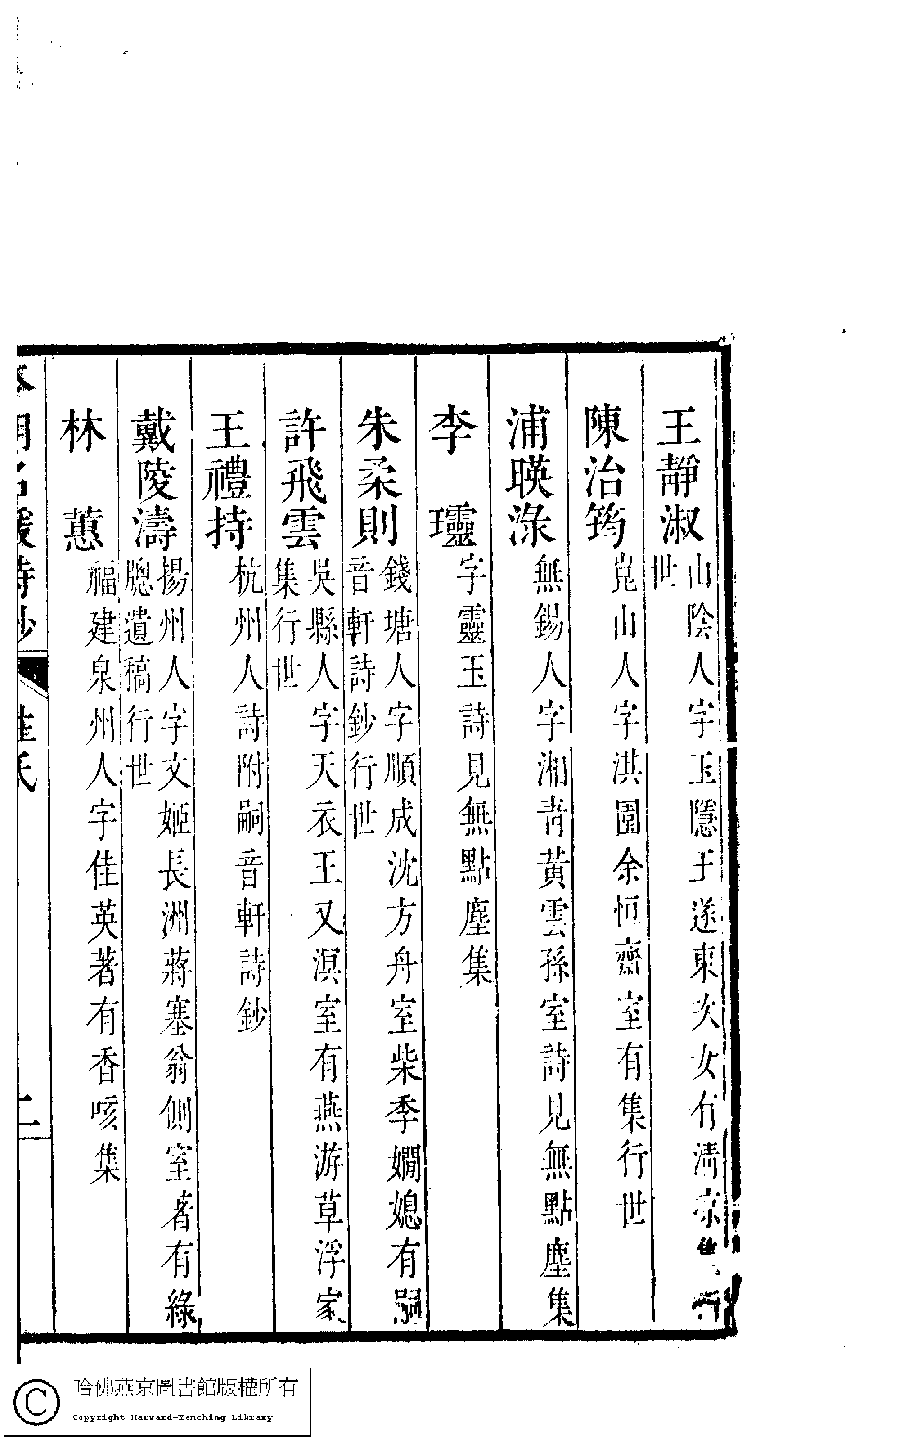 王靜淑 山陰人字玉隱王遂東次女有清涼集行
世
陳治筠 崑山人字淇園余恒齋室有集行世
浦暎淥 無錫人字湘青黃雲孫室詩見無點塵集
李𤫊 字靈玉詩見無點塵集
朱柔則 錢塘人字順成沈方舟室柴季嫺媳有嗣
音軒詩鈔行世
許飛雲 吳縣人字天衣王又溟室有燕游草浮家
集行世
王禮持 杭州人詩附嗣音軒詩鈔
戴陵濤 揚州人字文姬長洲蔣塞翁側室著有綠
牕遺稿行世
林蕙 福建泉州人字佳英著有香咳集
本朝名媛詩鈔 姓氏 二
哈佛燕京圖書館版權所有
Copyright Harvard-Yenching Library